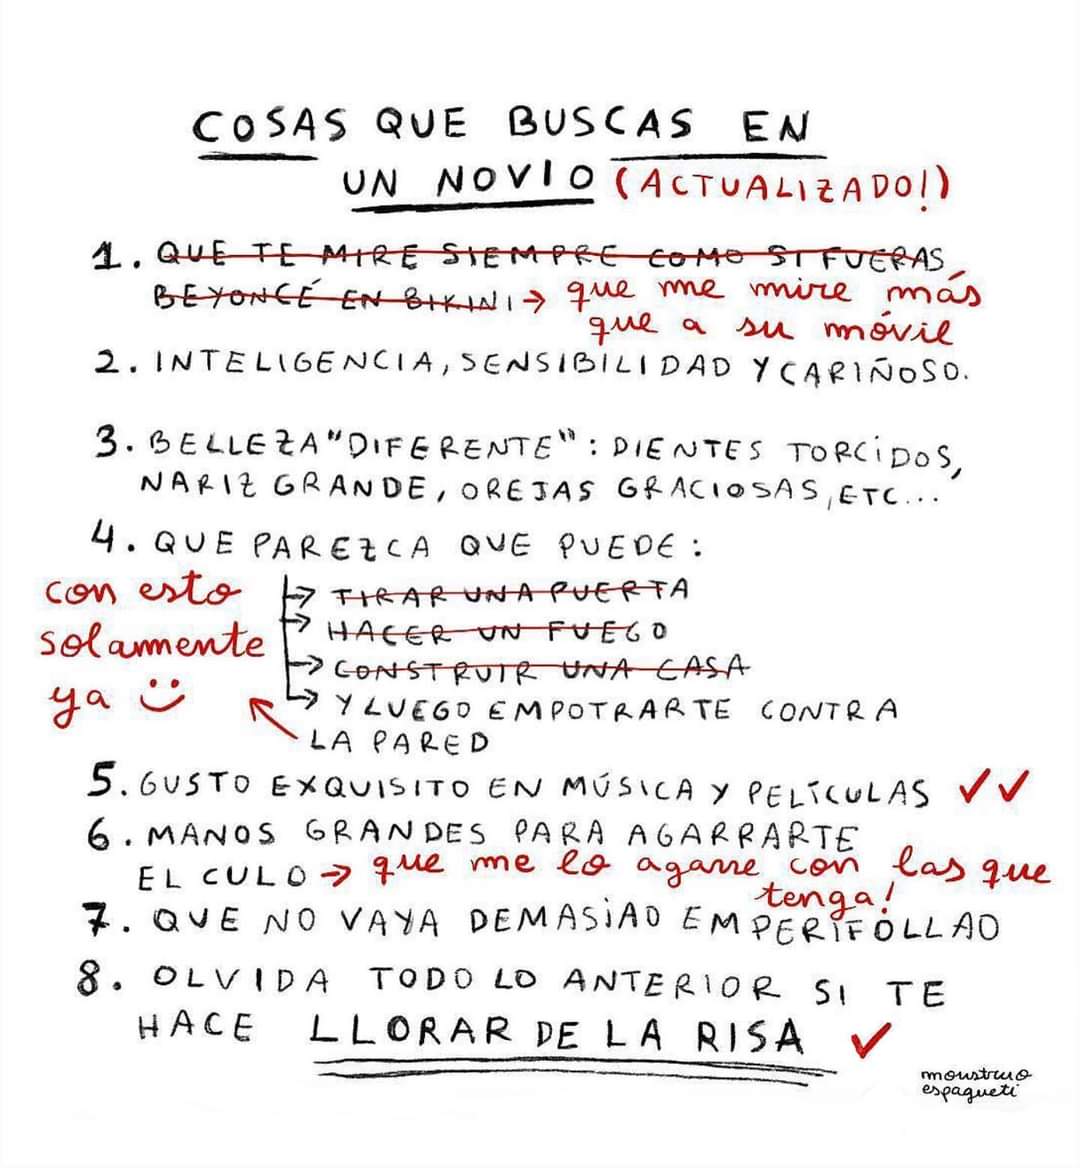 COSAS QUE BUSCAS EN
UN NOVIO (ACTUALIZADO!)
1. QUE TE MIRE SIEMPRE COMO SI FUERAS
BEYONCÉ EN BIKINI → que me mire más
que a su móvil
2. INTELIGENCIA, SENSIBILIDAD Y CARIÑOSO.
3. BELLEZA "DIFERENTE": DIENTES TORCIDOS,
NARIZ GRANDE, OREJAS GRACIOSAS, ETC...
4. QUE PAREZCA QUE PUEDE:
→ TIRAR UNA PUERTA
→ HACER UN FUEGO
→ CONSTRUIR UNA CASA
→ Y LUEGO EMPOTRARTE CONTRA
LA PARED
con esto
solamente
ya
5. GUSTO EXQUISITO EN MÚSICA Y PELÍCULAS ✓✓
6. MANOS GRANDES PARA AGARRARTE
EL CULO → que me lo agarre con las que
tenga!
7. QUE NO VAYA DEMASIAO EMPERIFOLLAO
8. OLVIDA TODO LO ANTERIOR SI TE
HACE LLORAR DE LA RISA ✓
monstruo
espagueti